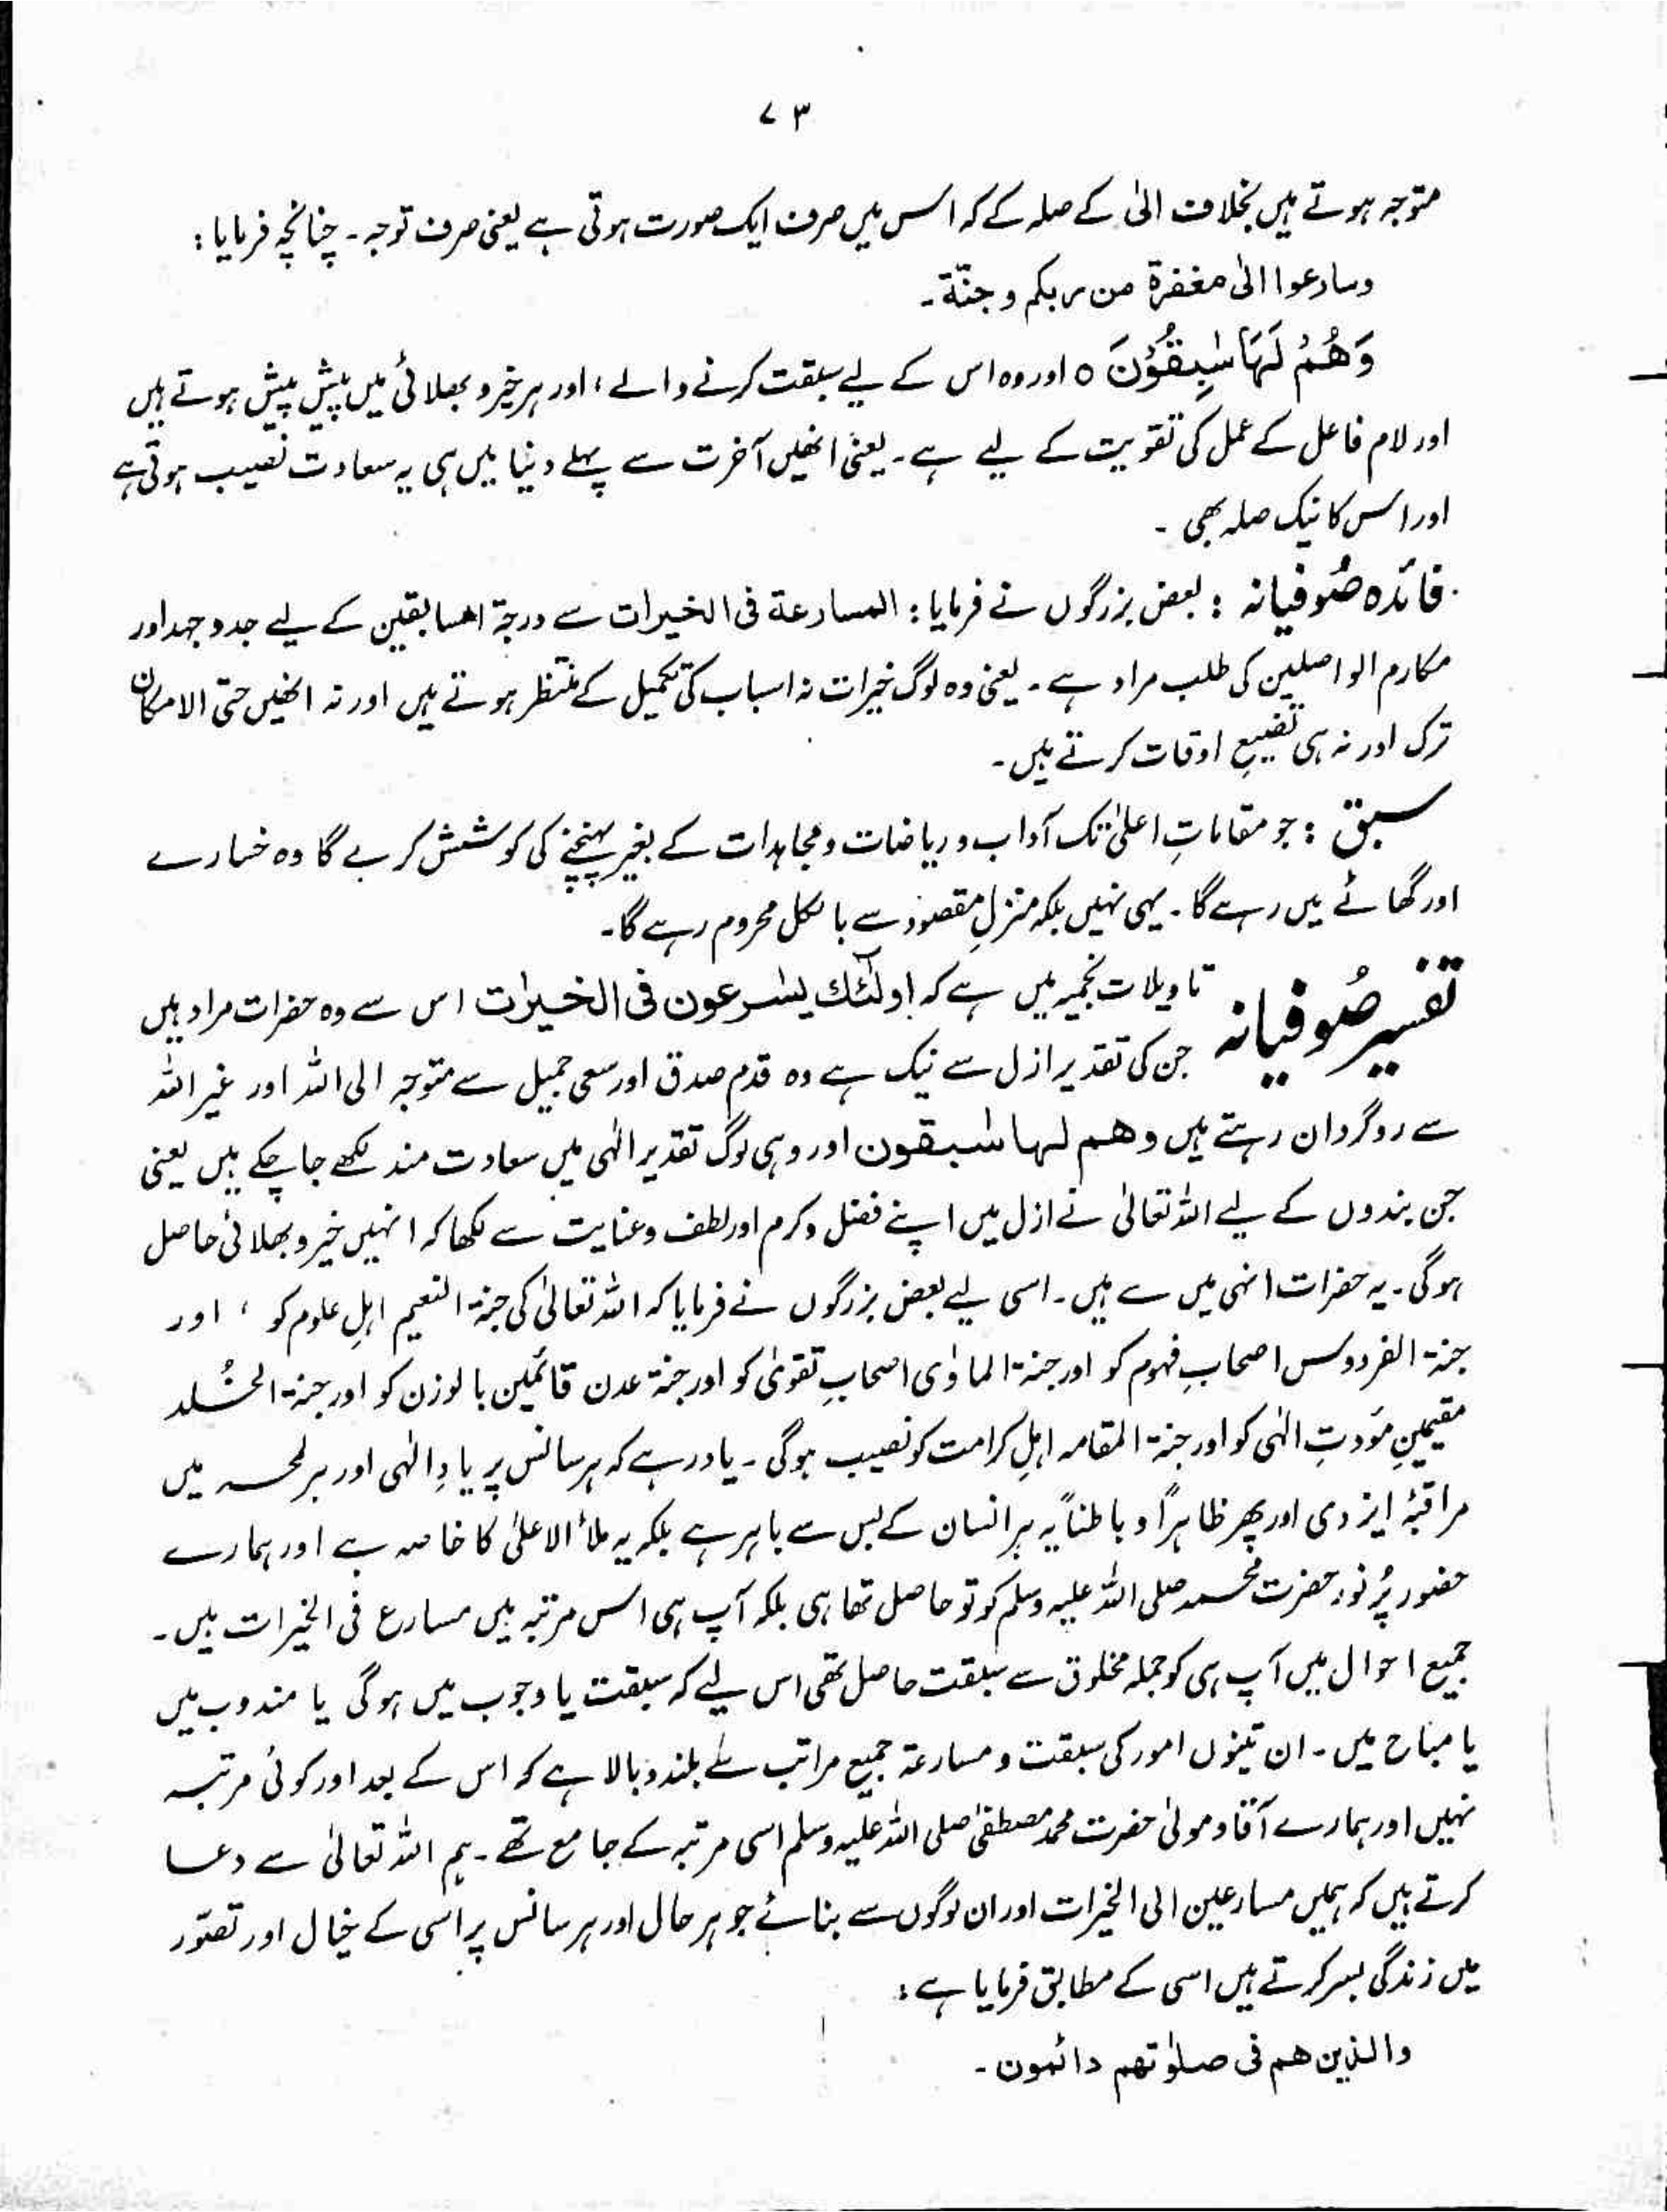 ۷۳
متوجہ ہوتے ہیں بخلاف الیٰ کے صلہ کے کہ اس میں صرف ایک صورت ہوتی ہے یعنی صرف توجہ۔ چنانچہ فرمایا:
وسارعوا الیٰ مغفرۃ من ربکم وجنّۃ۔
وَھُمْ لَہَا سٰبِقُوْنَ ○ اور وہ اس کے لیے سبقت کرنے والے، اور ہر خیر و بھلائی میں پیش پیش ہوتے ہیں
اور لام فاعل کے عمل کی تقویت کے لیے ہے۔ یعنی انھیں آخرت سے پہلے دنیا میں ہی یہ سعادت نصیب ہوتی ہے
اور اس کا نیک صلہ بھی۔
فائدہ صُوفیانہ: بعض بزرگوں نے فرمایا: المسارعۃ فی الخیرات سے درجۃ السابقین کے لیے جدوجہد اور
مکارم الواصلین کی طلب مراد ہے۔ یعنی وہ لوگ خیرات نہ اسباب کی تکمیل کے منتظر ہوتے ہیں اور نہ انھیں حتی الامکان
ترک اور نہ ہی تضییعِ اوقات کرتے ہیں۔
سبق: جو مقاماتِ اعلیٰ تک آداب و ریاضات و مجاہدات کے بغیر پہنچنے کی کوشش کرے گا وہ خسارے
اور گھاٹے میں رہے گا۔ یہی نہیں بلکہ منزلِ مقصود سے بالکل محروم رہے گا۔
تفسیر صُوفیانہ تاویلات نجمیہ میں ہے کہ اولٰٓئک یسٰرعون فی الخیرٰت اس سے وہ حضرات مراد ہیں
جن کی تقدیر ازل سے نیک ہے وہ قدمِ صدق اور سعی جمیل سے متوجہ الی اللہ اور غیر اللہ
سے روگردان رہتے ہیں وھم لہا سٰبقون اور وہی لوگ تقدیر الٰہی میں سعادت مند لکھے جا چکے ہیں یعنی
جن بندوں کے لیے اللہ تعالیٰ نے ازل میں اپنے فضل و کرم اور لطف و عنایت سے لکھا کہ انہیں خیر و بھلائی حاصل
ہوگی۔ یہ حضرات انہی میں سے ہیں۔ اسی لیے بعض بزرگوں نے فرمایا کہ اللہ تعالیٰ کی جنۃ النعیم اہلِ علوم کو، اور
جنۃ الفردوس اصحابِ فہوم کو اور جنۃ الماوٰی اصحابِ تقویٰ کو اور جنۃ عدن قائمین بالوزن کو اور جنۃ الخُلد
مقیمینِ مَوّدتِ الٰہی کو اور جنۃ المقامہ اہلِ کرامت کو نصیب ہوگی۔ یاد رہے کہ ہر سانس پر یادِ الٰہی اور ہر لمحہ میں
مراقبۂ ایزدی اور پھر ظاہراً و باطناً یہ ہر انسان کے بس سے باہر ہے بلکہ یہ ملأ الاعلیٰ کا خاصہ ہے اور ہمارے
حضور پُر نور حضرت محمد صلی اللہ علیہ وسلم کو تو حاصل تھا ہی بلکہ آپ ہی اس مرتبہ میں مسارع فی الخیرات ہیں۔
جمیع احوال میں آپ ہی کو جملہ مخلوق سے سبقت حاصل تھی اس لیے کہ سبقت یا وجوب میں ہوگی یا مندوب میں
یا مباح میں۔ ان تینوں امور کی سبقت و مسارعۃ جمیع مراتب سے بلند و بالا ہے کہ اس کے بعد اور کوئی مرتبہ
نہیں اور ہمارے آقا و مولیٰ حضرت محمد مصطفیٰ صلی اللہ علیہ وسلم اسی مرتبہ کے جامع تھے۔ ہم اللہ تعالیٰ سے دعا
کرتے ہیں کہ ہمیں مسارعین الی الخیرات اور ان لوگوں سے بنائے جو ہر حال اور ہر سانس پر اسی کے خیال اور تصوّر
میں زندگی بسر کرتے ہیں اسی کے مطابق فرمایا ہے:
والذین ھم فی صلوٰتھم دائمون۔